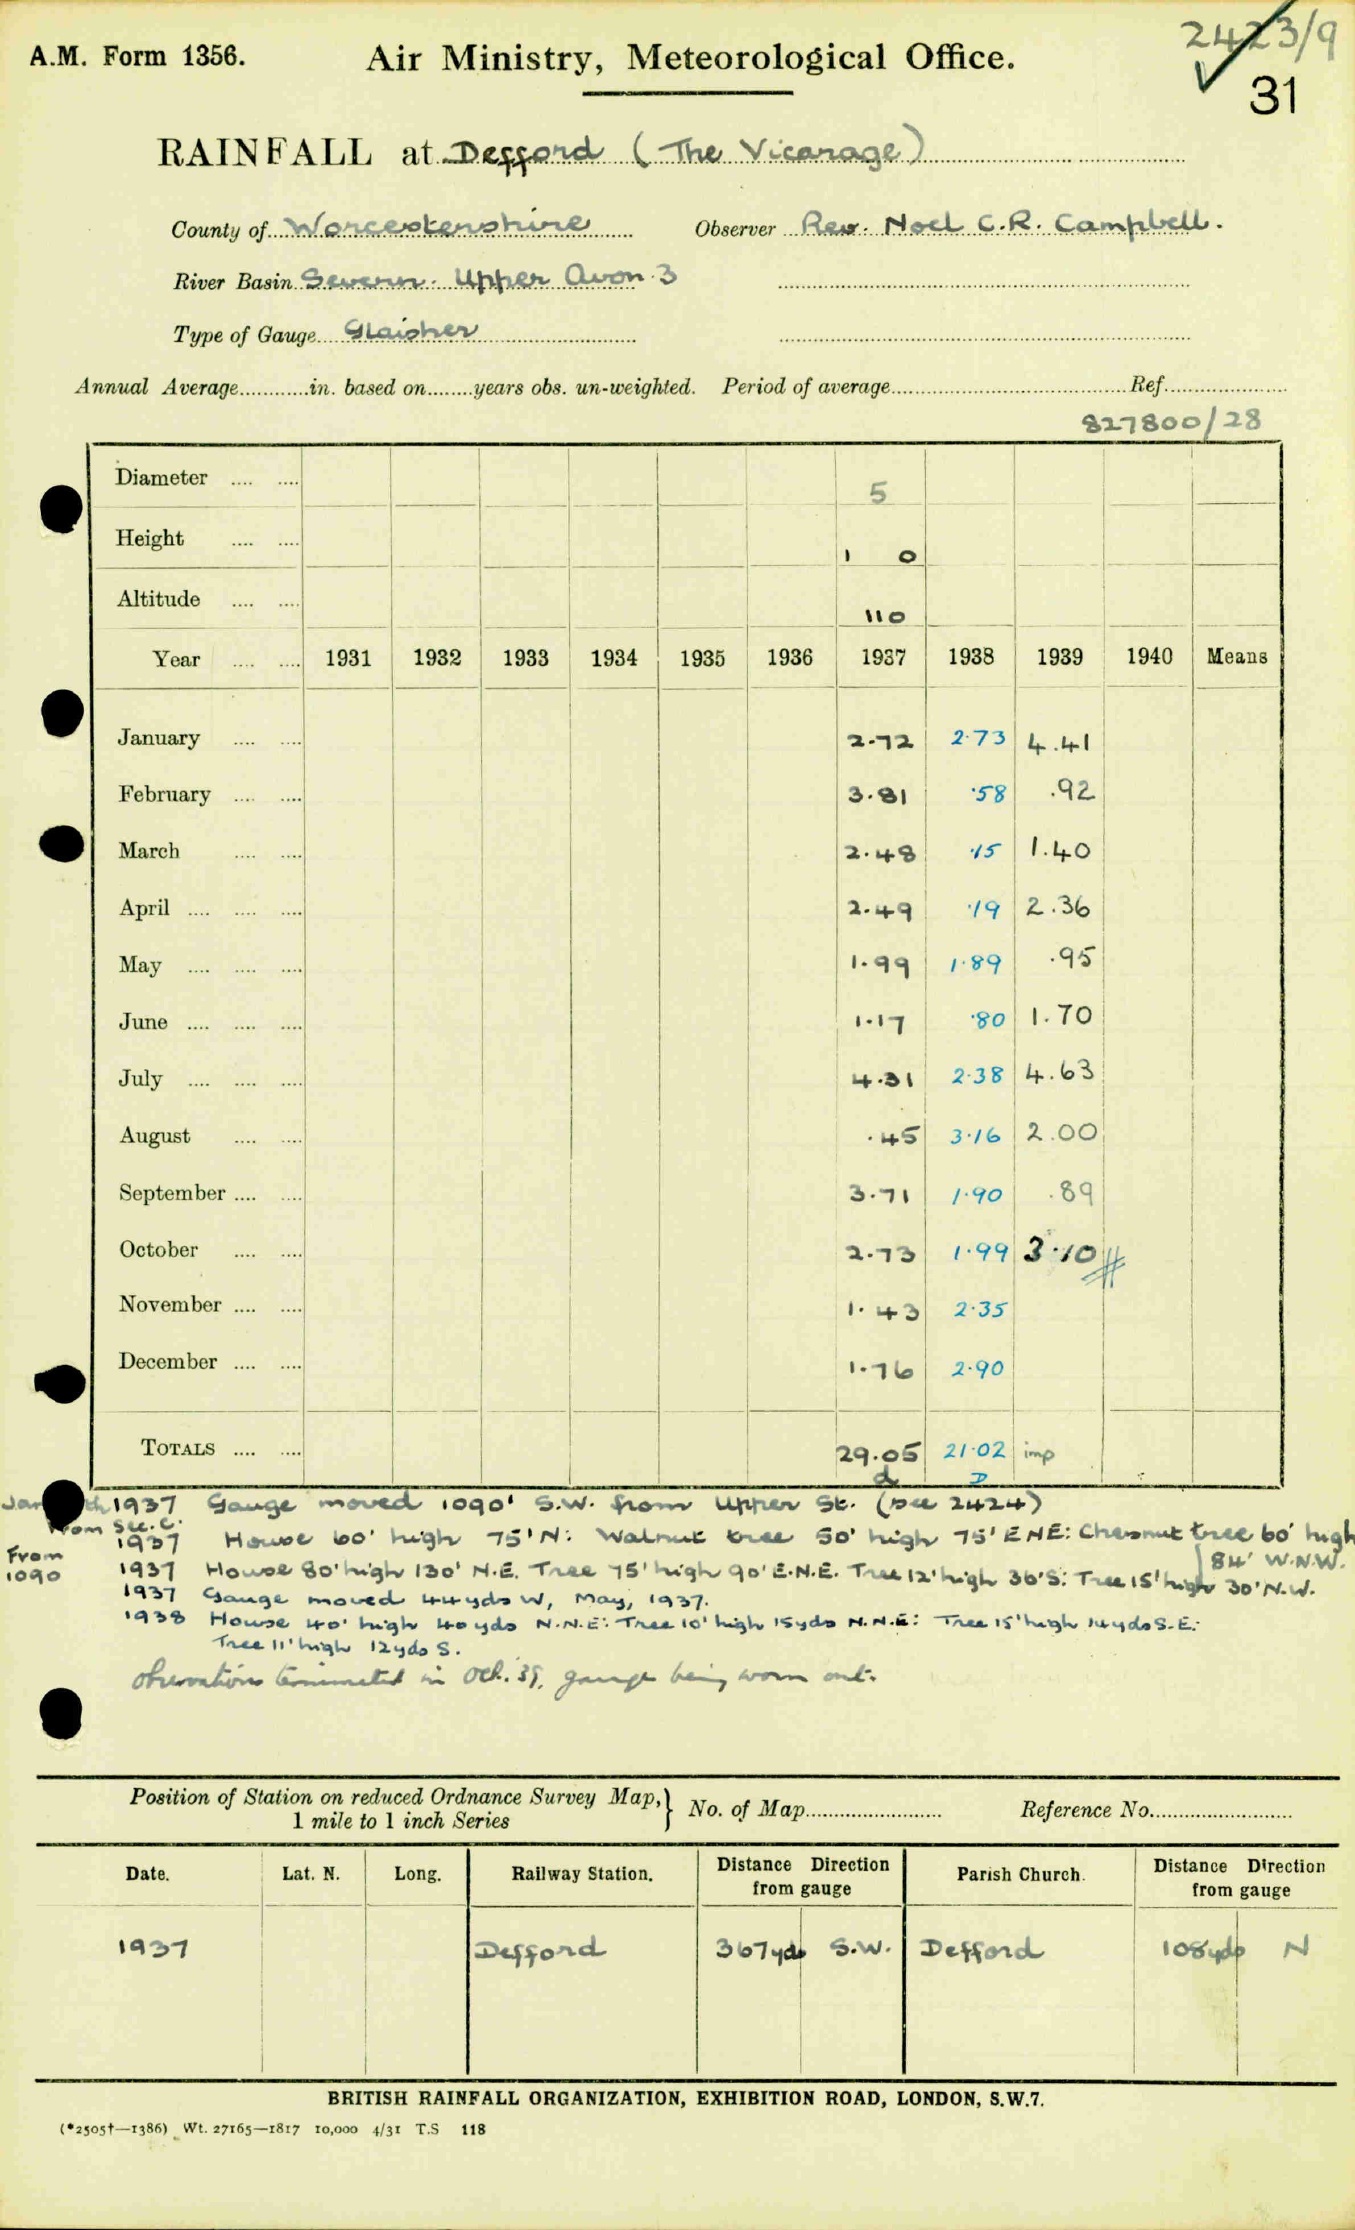 2423/9
A.M. Form 1356.
Air Ministry, Meteorological Office.
31
RAINFALL at Defford (The Vicarage)
County of Worcestershire Observer Rev. Noel C.R. Campbell.
River Basin Severn. Upper Avon 3
Type of Gauge Glaisher
Annual Average............in. based on........years obs. un-weighted. Period of average.................... Ref....................
827800/28
Diameter .... .... 5
Height .... .... 1 0
Altitude .... .... 110
Year .... .... 1931 1932 1933 1934 1935 1936 1937 1938 1939 1940 Means
January .... .... 2.72 2.73 4.41
February .... .... 3.81 .58 .92
March .... .... 2.48 .15 1.40
April .... .... .... 2.49 .19 2.36
May .... .... .... 1.99 1.89 .95
June .... .... .... 1.17 .80 1.70
July .... .... .... 4.31 2.38 4.63
August .... .... .45 3.16 2.00
September .... .... 3.71 1.90 .89
October .... .... 2.73 1.99 3.10 #
November .... .... 1.43 2.35
December .... .... 1.76 2.90
TOTALS .... .... 29.05 21.02 imp
d D
1937 Gauge moved 1090' S.W. from Upper St. (see 2424)
From Sec. C.
1937 House 60' high 75' N: Walnut tree 50' high 75' ENE: Chesnut tree 60' high
84' W.N.W.
From
1090
1937 House 80' high 130' N.E. Tree 75' high 90' E.N.E. Tree 12' high 36' S: Tree 15' high 30' N.W.
1937 Gauge moved 44yds W, May, 1937.
1938 House 40' high 40yds N.N.E: Tree 10' high 15yds N.N.E: Tree 15' high 14yds S.E:
Tree 11' high 12yds S.
Observations terminated in Oct. '39, gauge being worn out.
Position of Station on reduced Ordnance Survey Map, } No. of Map........................ Reference No.........................
1 mile to 1 inch Series
Date. Lat. N. Long. Railway Station. Distance Direction from gauge Parish Church. Distance Direction from gauge
1937 Defford 367yds S.W. Defford 108yds N
BRITISH RAINFALL ORGANIZATION, EXHIBITION ROAD, LONDON, S.W.7.
(*2505†—1386) Wt. 27165—1817 10,000 4/31 T.S 118